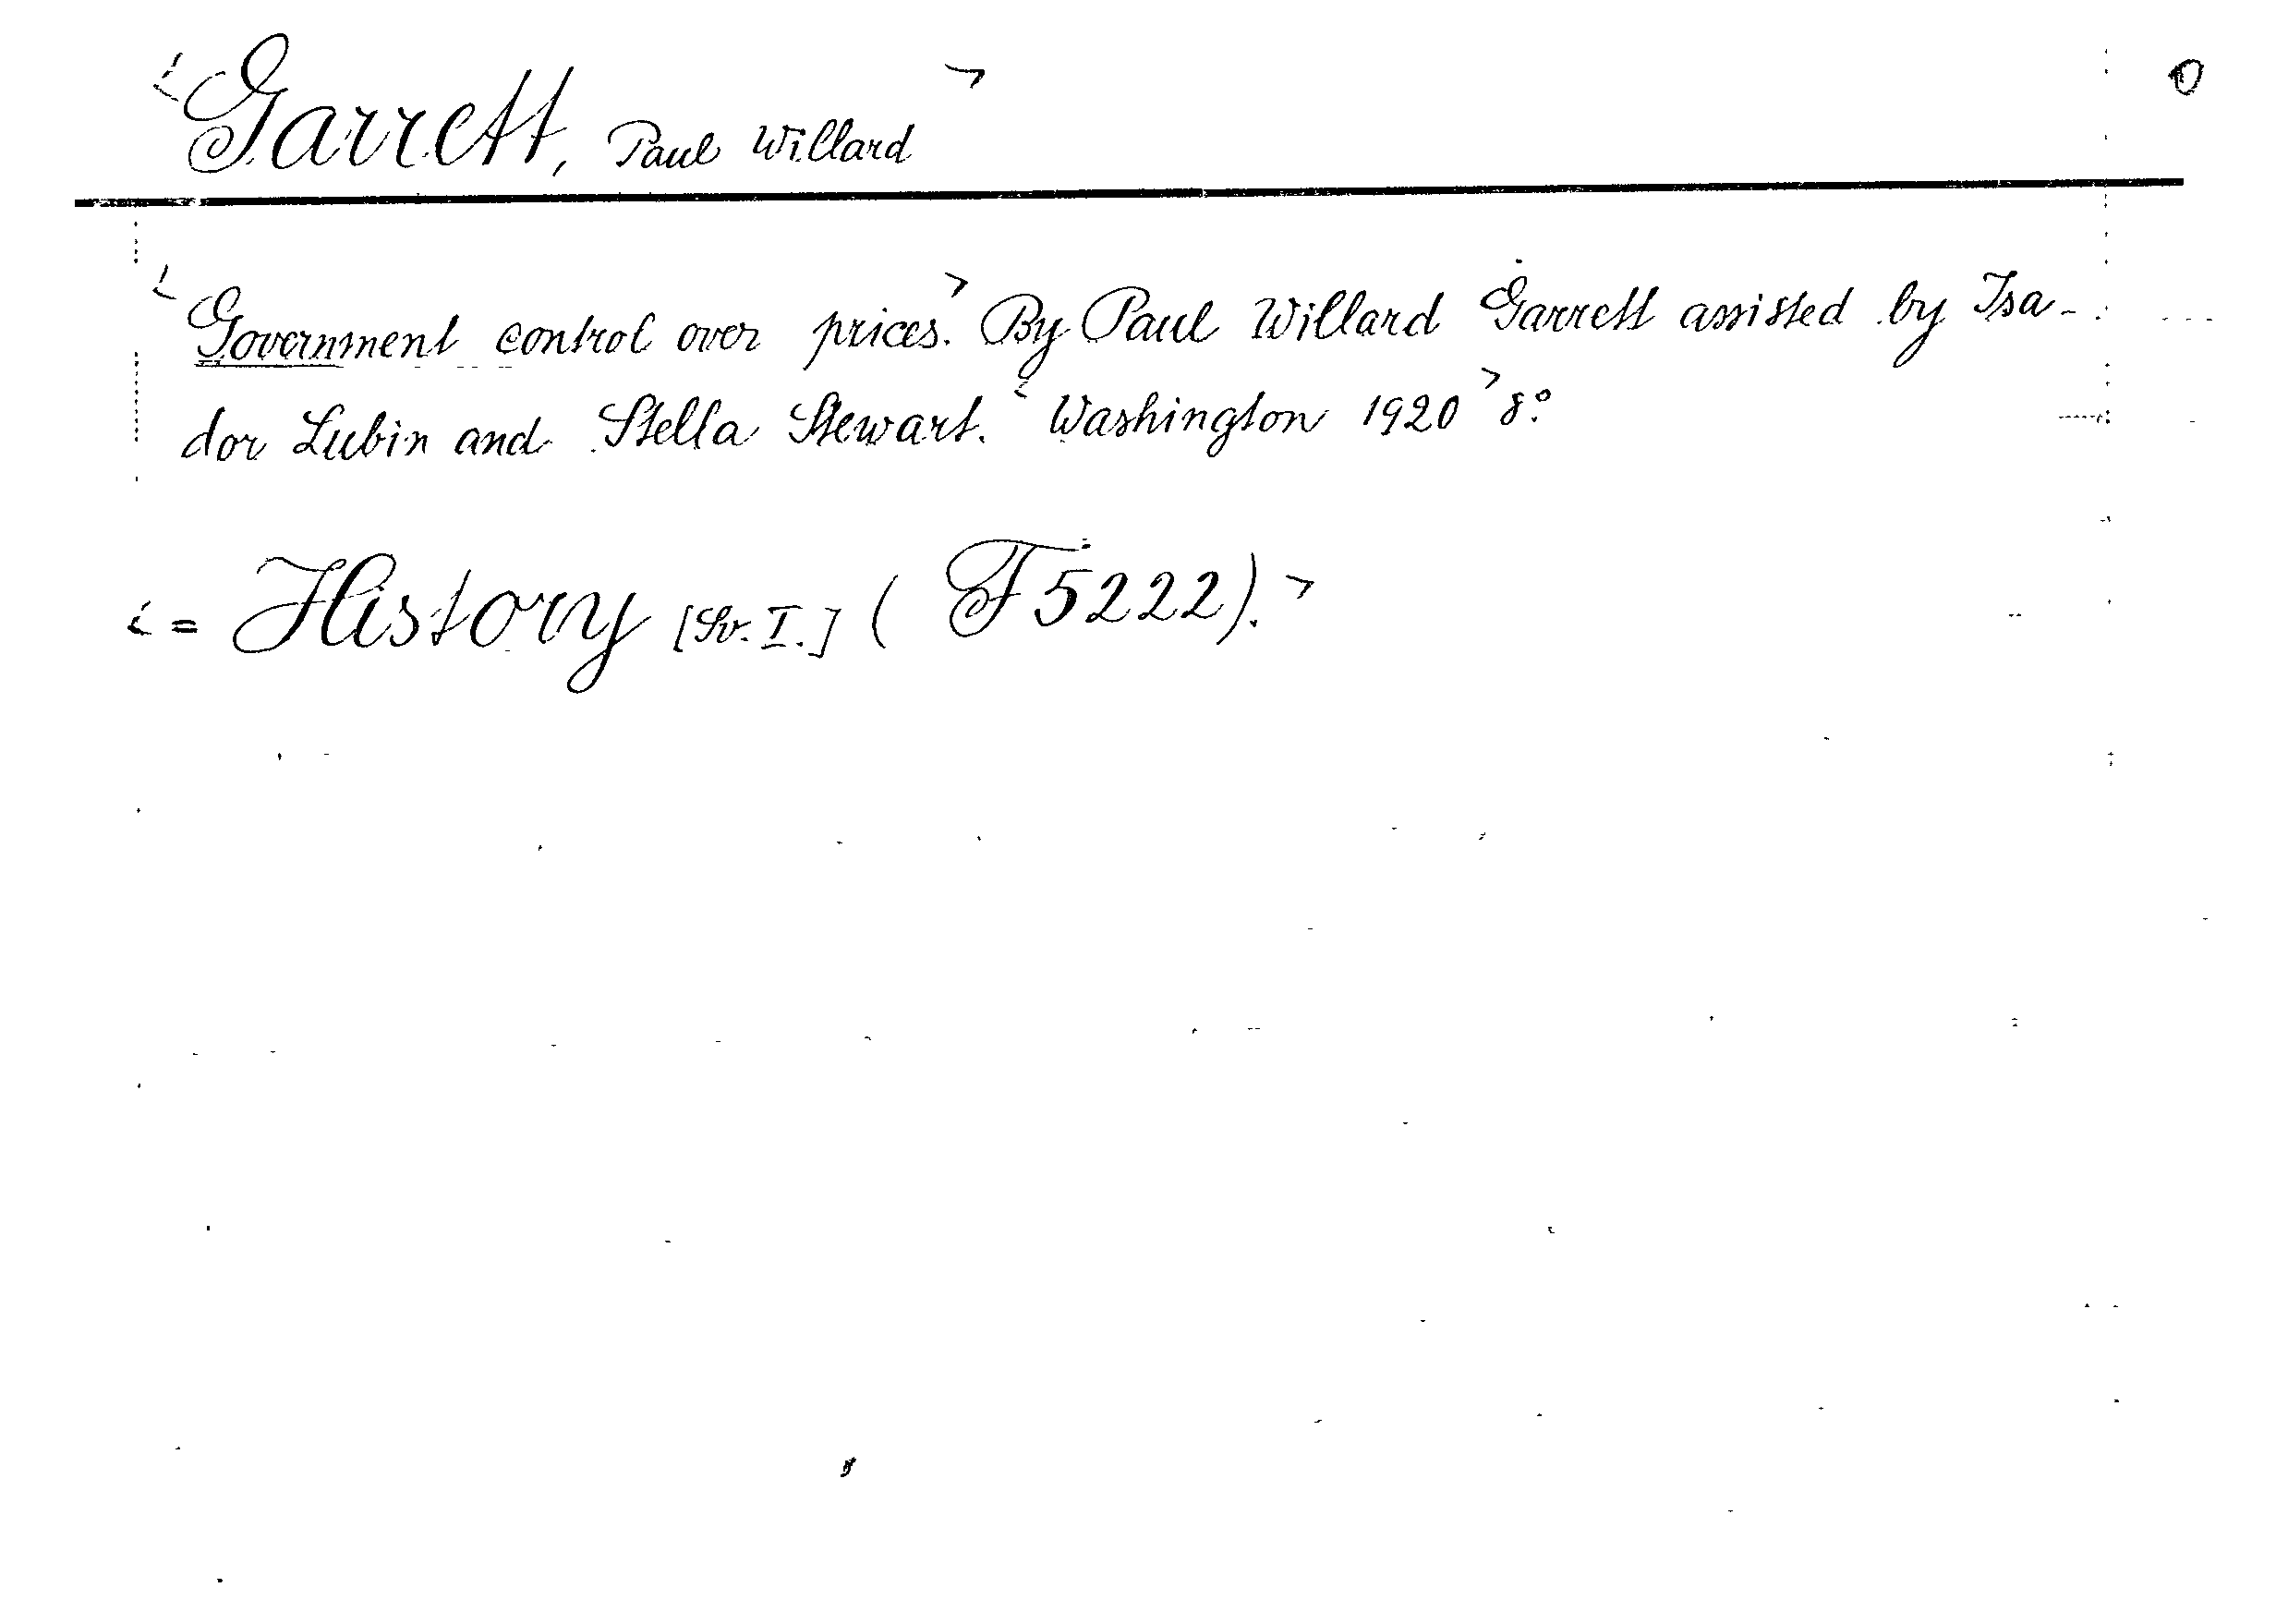 <Garrett, Paul Willard>
<Government control over prices.> By Paul Willard Garrett assisted by Isa-
dor Lubin and Stella Stewart. <Washington 1920> 8°.
<= History [Sv. I.] (F5222).>